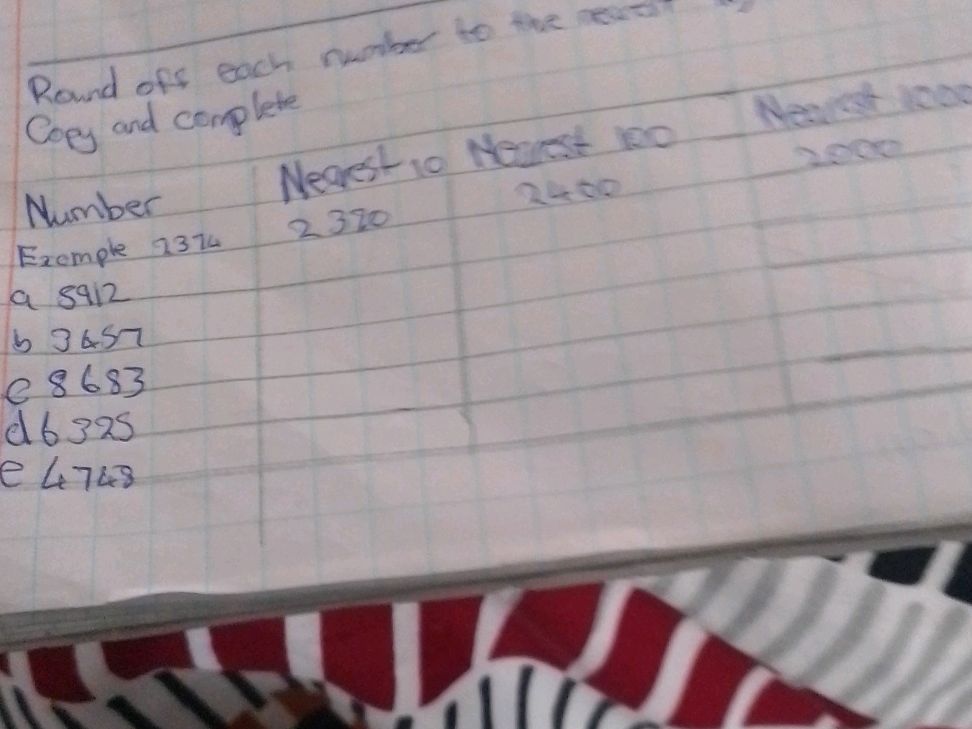 Round off each number to the nearest
Copy and complete
Number Nearest 10 Nearest 100 Nearest 1000
Example 2374 2370 2400 2000
a 5912
b 3657
c 8683
d 6325
e 4748